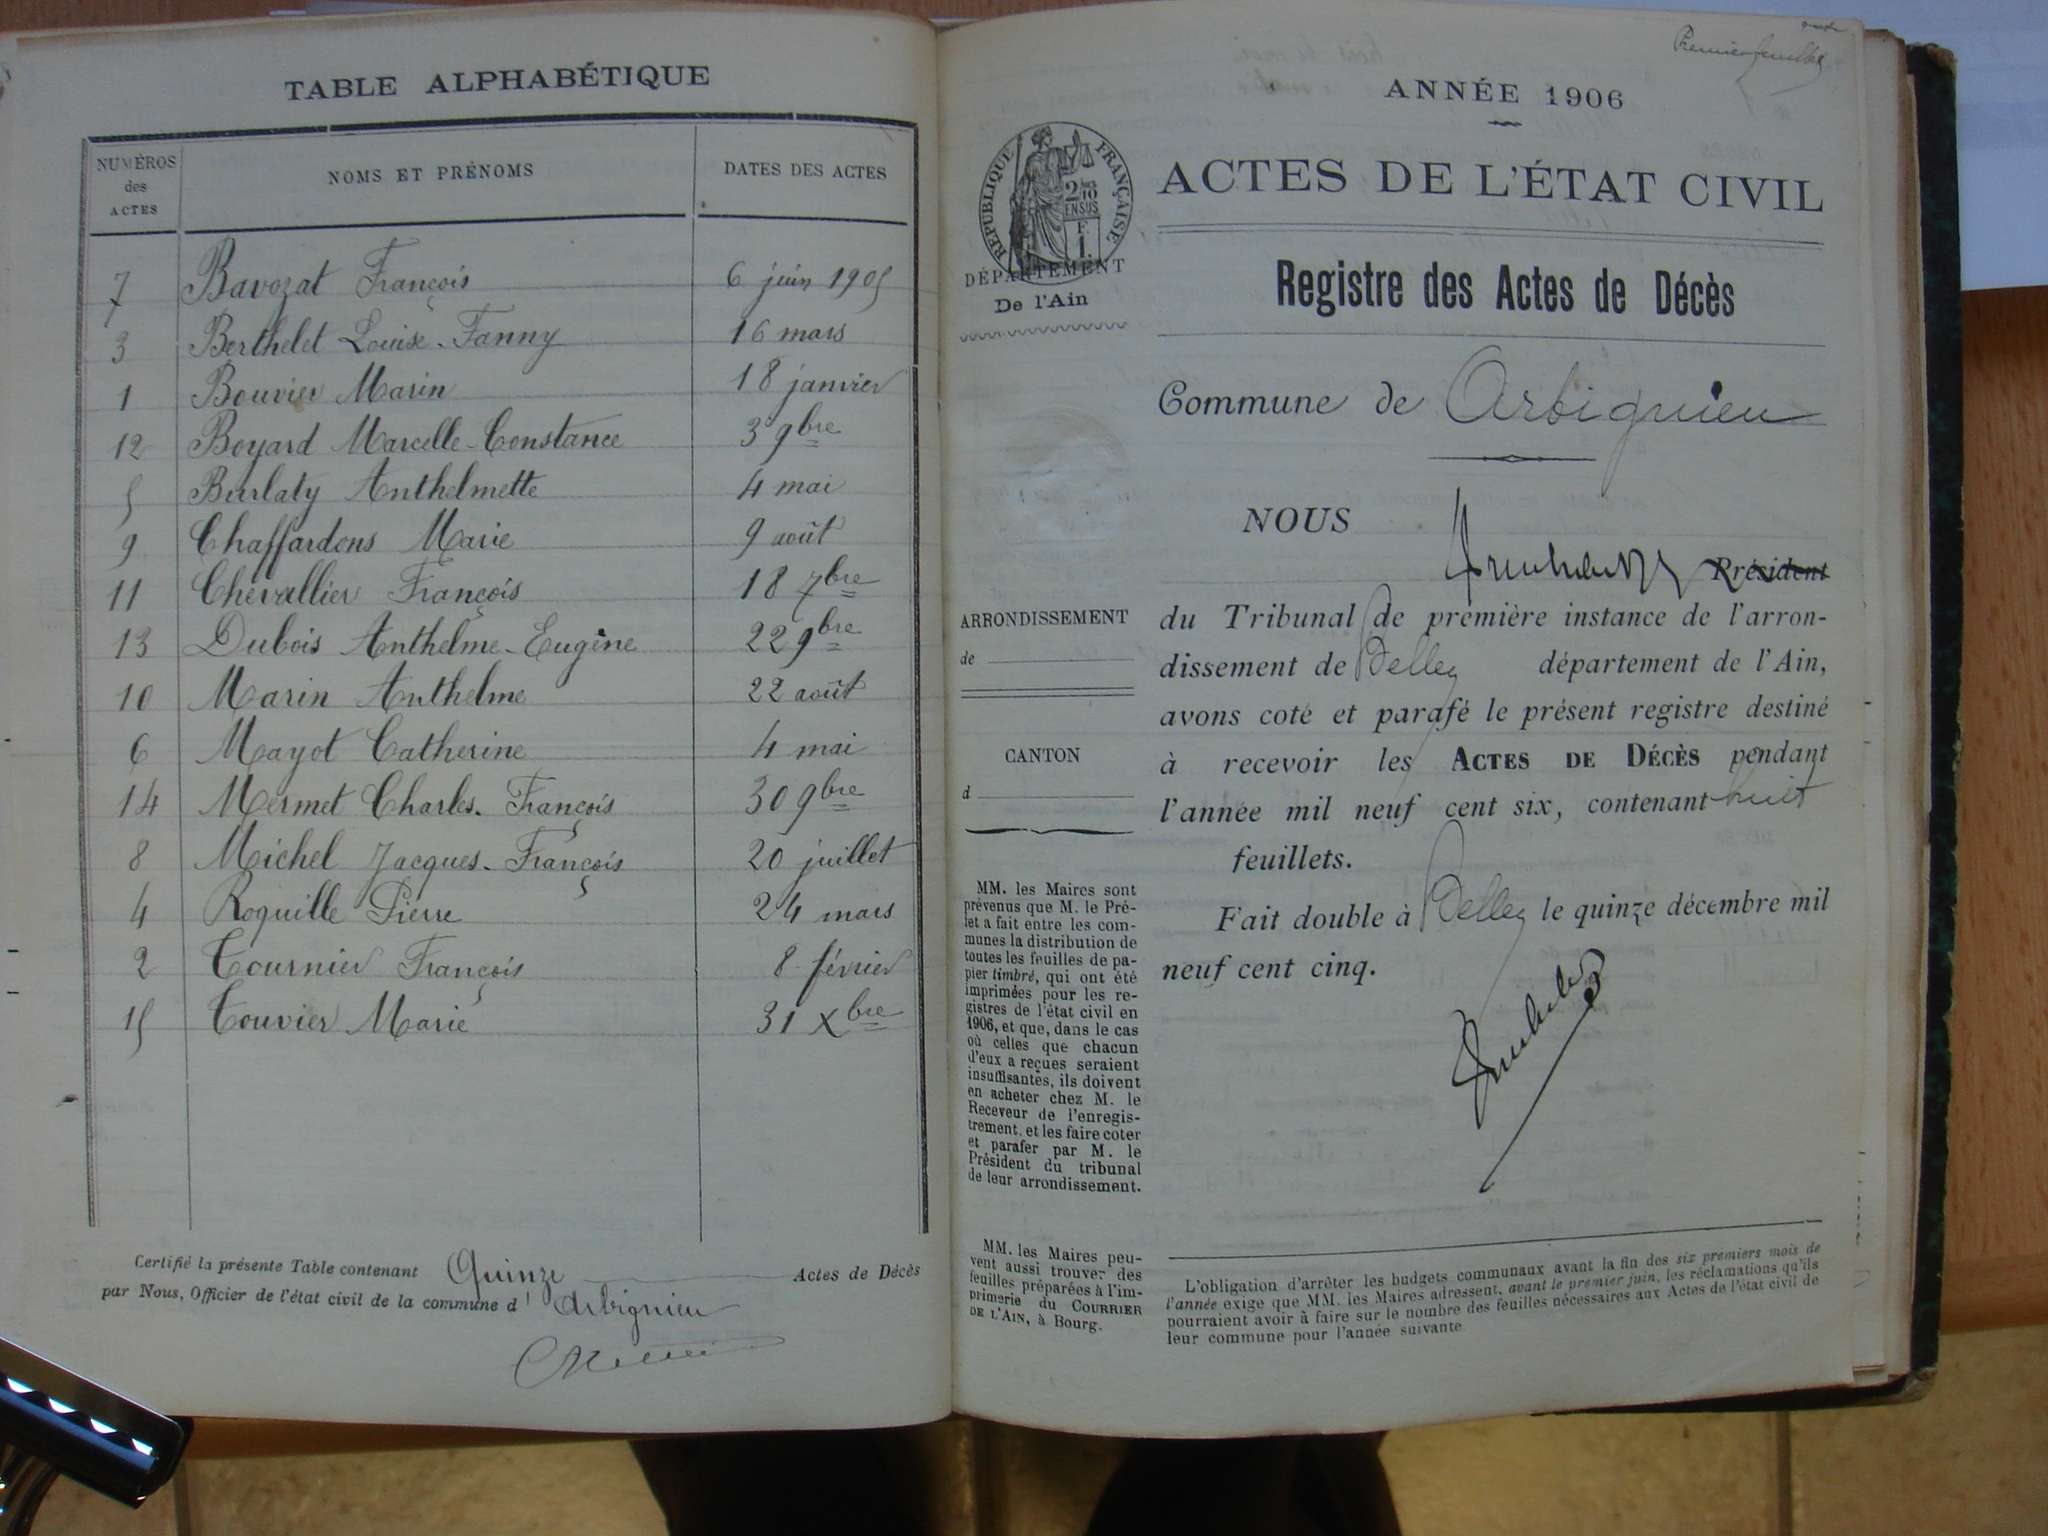 TABLE ALPHABÉTIQUE
NUMÉROS des ACTES NOMS ET PRÉNOMS DATES DES ACTES
7 Bavozat François 6 juin 1905
3 Berthelet Louise-Fanny 16 mars
1 Bouvier Marin 18 janvier
12 Boyard Marcelle-Constance 3 9bre
5 Burlaty Anthelmette 4 mai
9 Chaffardons Marie 9 août
11 Chevallier François 18 7bre
13 Dubois Anthelme-Eugène 22 9bre
10 Marin Anthelme 22 août
6 Mayot Catherine 4 mai
14 Mermet Charles-François 30 9bre
8 Michel Jacques-François 20 juillet
4 Roquille Pierre 24 mars
2 Tournier François 8 février
15 Touvier Marie 31 Xbre
Certifié la présente Table contenant Quinze Actes de Décès
par Nous, Officier de l'état civil de la commune d'Arbignieu
Premier feuillet
ANNÉE 1906
RÉPUBLIQUE FRANÇAISE
2/10
EN SUS
F.
1.
ACTES DE L'ÉTAT CIVIL
DÉPARTEMENT
De l'Ain
Registre des Actes de Décès
Commune de Arbignieu
NOUS
Président
du Tribunal de première instance de l'arron-
dissement de Belley département de l'Ain,
avons coté et parafé le présent registre destiné
à recevoir les ACTES DE DÉCÈS pendant
l'année mil neuf cent six, contenant huit
feuillets.
Fait double à Belley le quinze décembre mil
neuf cent cinq.
ARRONDISSEMENT
de
CANTON
d
MM. les Maires sont
prévenus que M. le Pré-
fet a fait entre les com-
munes la distribution de
toutes les feuilles de pa-
pier timbré, qui ont été
imprimées pour les re-
gistres de l'état civil en
1906, et que, dans le cas
où celles que chacun
d'eux a reçues seraient
insuffisantes, ils doivent
en acheter chez M. le
Receveur de l'enregis-
trement, et les faire coter
et parafer par M. le
Président du tribunal
de leur arrondissement.
MM. les Maires peu-
vent aussi trouver des
feuilles préparées à l'im-
primerie du COURRIER
DE L'AIN, à Bourg.
L'obligation d'arrêter les budgets communaux avant la fin des six premiers mois de
l'année exige que MM. les Maires adressent, avant le premier juin, les réclamations qu'ils
pourraient avoir à faire sur le nombre des feuilles nécessaires aux Actes de l'état civil de
leur commune pour l'année suivante.